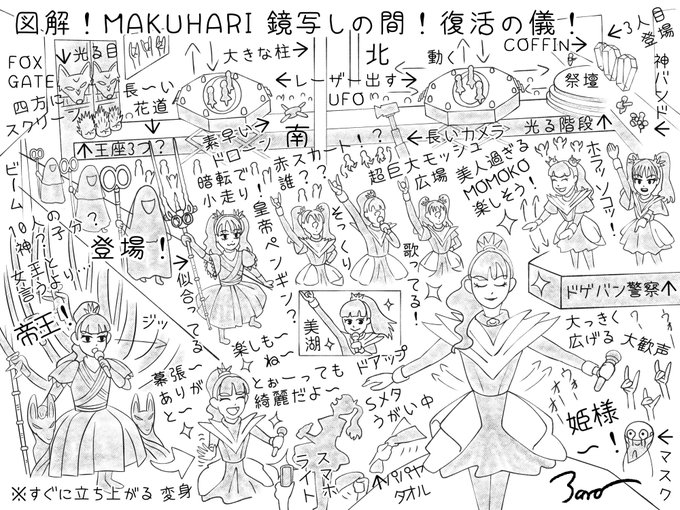 図解！MAKUHARI 鏡写しの間！復活の儀！
FOX
GATE
↓光る目
大きな柱→
北
動く→
COFFIN→
←3人登場
目
神バンド→
四方に
スクリーン
長〜い
花道
↓
←レーザー出す→
UFO
祭壇
↑王座3つ？
＜素早い
ドローン
南
←長いカメラ
光る階段↑
暗転で
小走り
赤スカート！？
誰？？
超巨大モッシュ
広場
美人過ぎる
MOMOKO
楽しそう！
ホラソコッ！
ビーム
10人の
神の子分？
登場！
皇帝ペンギン？
そっくり
歌ってる！
女王と
言うより…
帝王！
↑似合ってる〜
ジッ
美湖
ドアップ
ドゲバン警察↑
大っきく
広げる
大歓声
ウォー
ウォー
幕張〜
ありが
と〜
楽しも〜
ね〜
とぉーっても
綺麗だよ〜
Sメタ
うがい中
ウォー
ウォー
姫様
〜！
スマホ
ライト
↑パパヤ
タオル
←マスク
※すぐに立ち上がる 変身